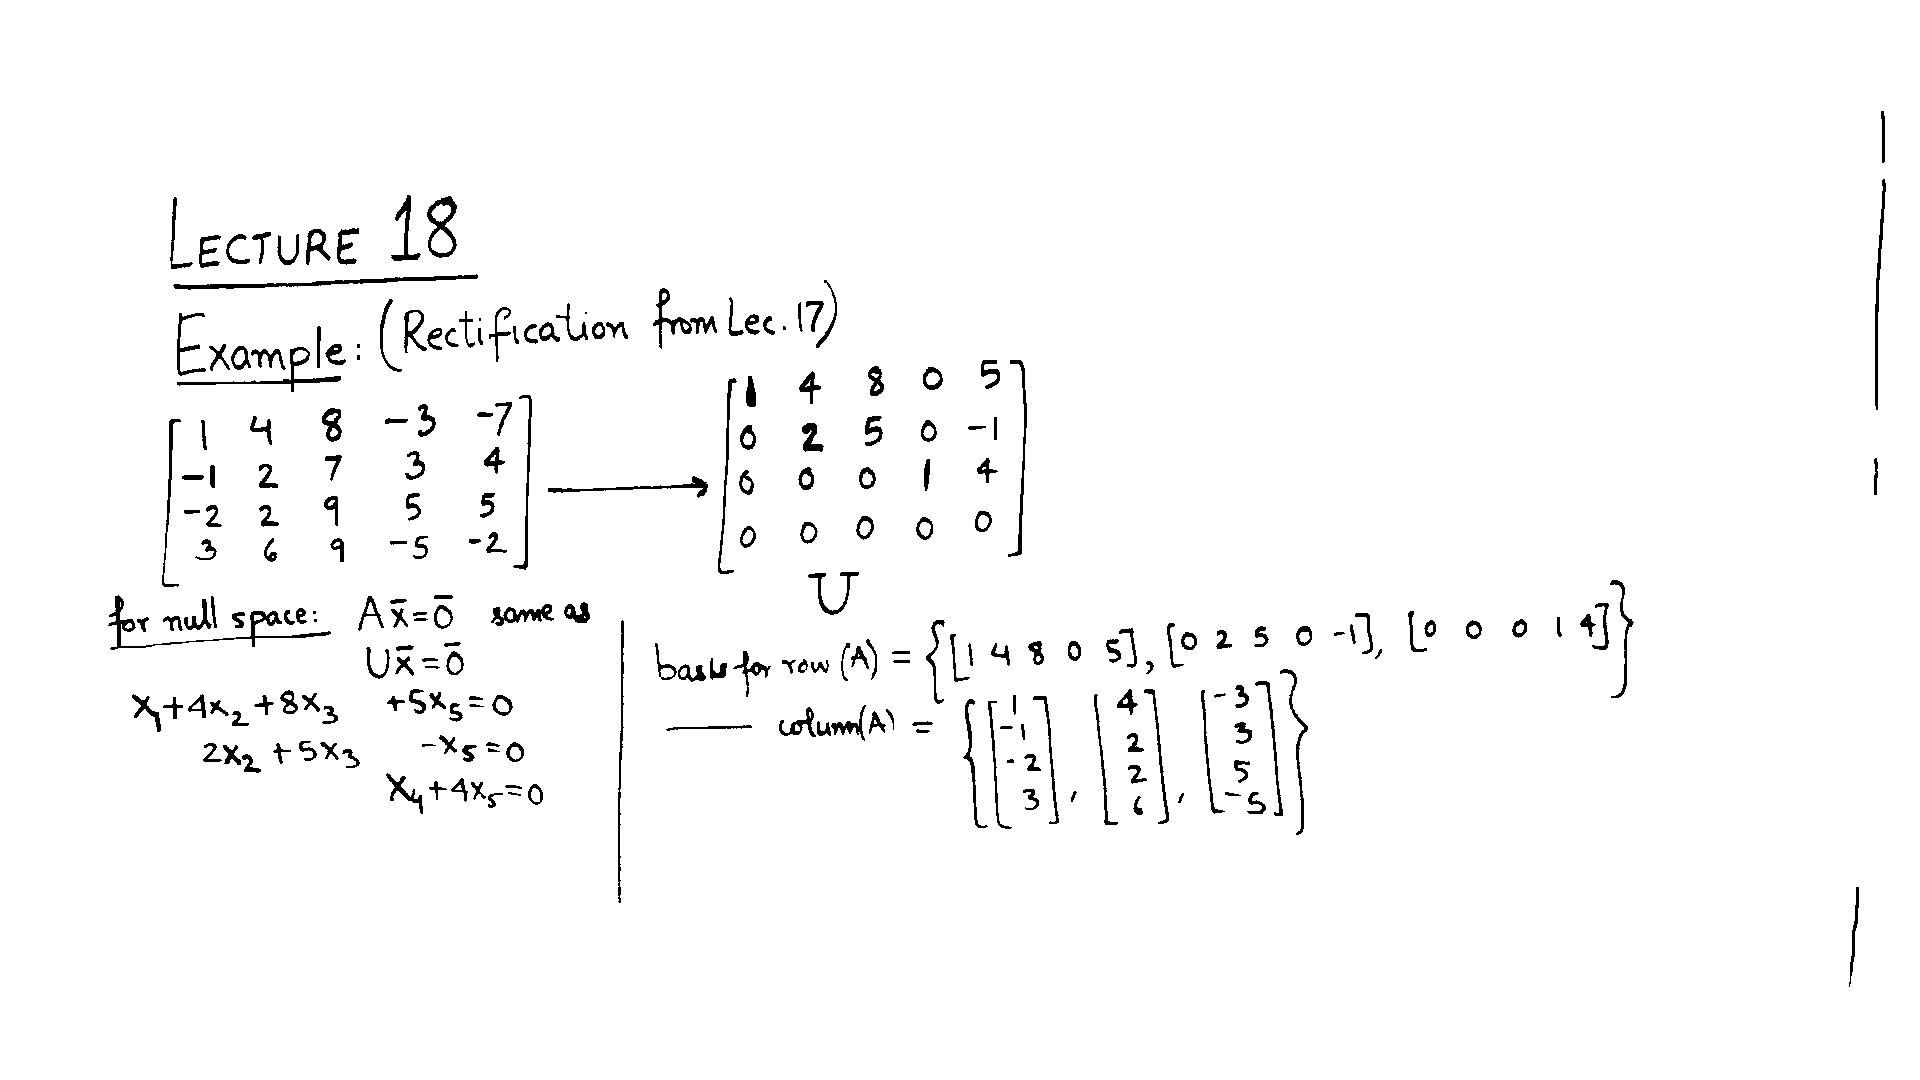 LECTURE 18
Example: (Rectification from Lec. 17)
[1 4 8 -3 -7
-1 2 7 3 4
-2 2 9 5 5
3 6 9 -5 -2]
→
[1 4 8 0 5
0 2 5 0 -1
0 0 0 1 4
0 0 0 0 0]
U
for null space: Ax̄=0̄ same as
Ux̄=0̄
x₁+4x₂+8x₃ +5x₅=0
2x₂+5x₃ -x₅=0
x₄+4x₅=0
basis for row (A) = {[1 4 8 0 5], [0 2 5 0 -1], [0 0 0 1 4]}
—— column(A) = {[1 -1 -2 3], [4 2 2 6], [-3 3 5 -5]}